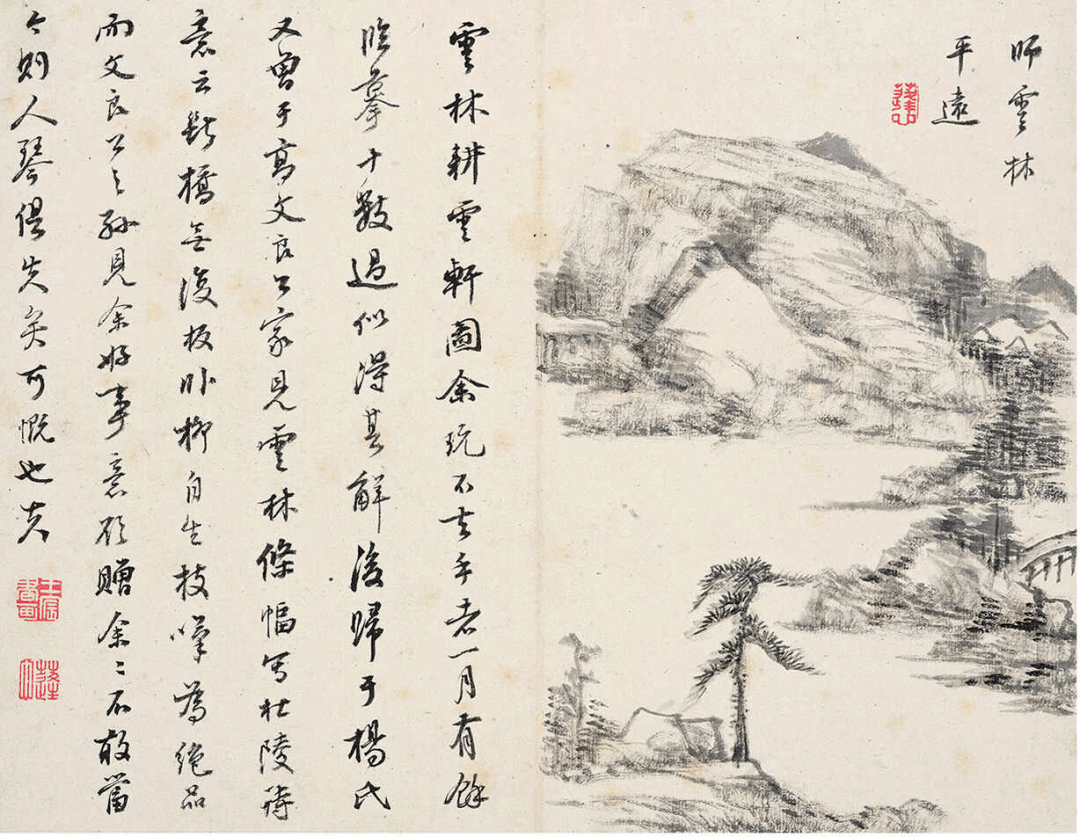 師雲林
平遠
雲林耕雲軒圖余玩不去手者一月有餘
臨摹十數過似得其解後歸于楊氏
又曾于高文良公家見雲林條幅写杜陵詩
意云斷橋無復板卧柳自生枝嘆為絕品
而文良公之孫見余好事意欲贈余〻不敢當
今則人琴俱失矣可慨也夫